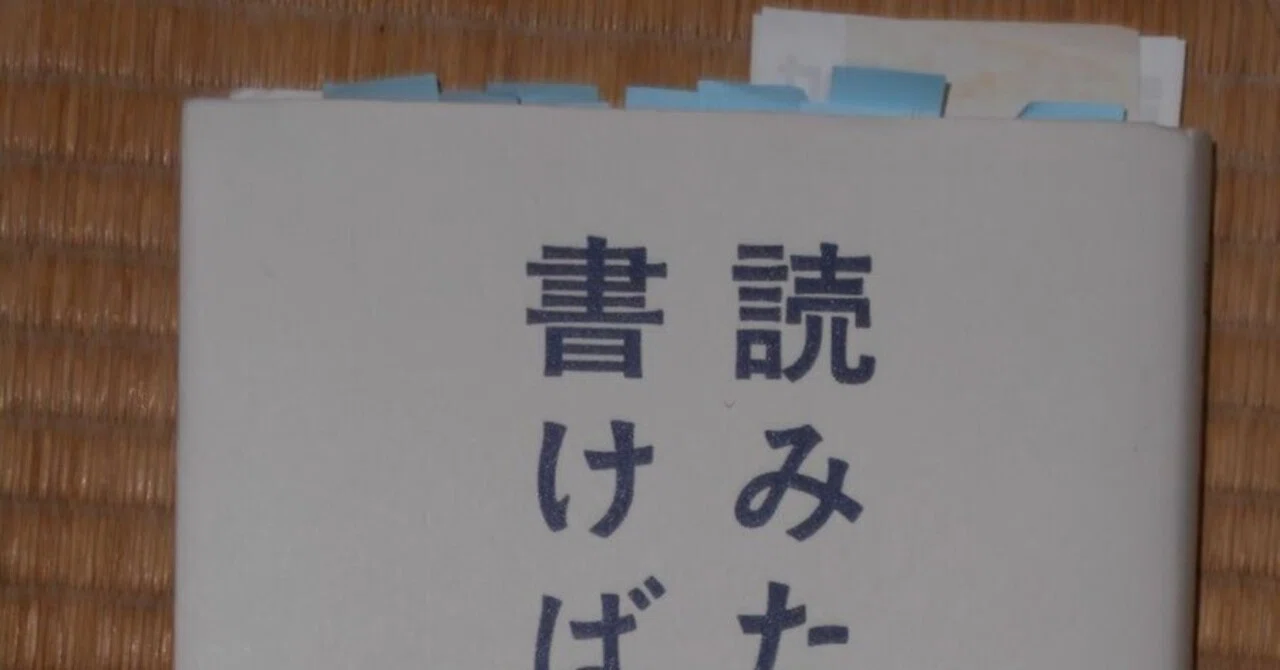 読みた
書けば